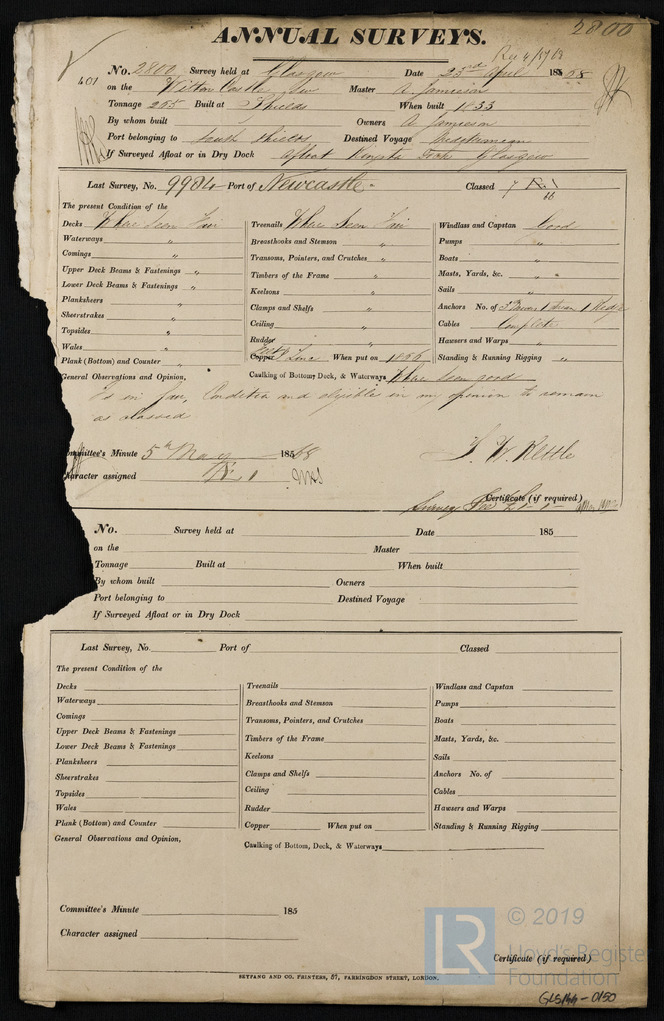 ANNUAL SURVEYS.
2800
No. 2800 Survey held at Glasgow Date 23rd April 1858
401
on the Witton Castle Sw Master A. Jamieson
Tonnage 265 Built at Shields When built 1833
By whom built Owners A. Jamieson
Port belonging to South Shields Destined Voyage Mediterranean
If Surveyed Afloat or in Dry Dock Afloat Glasgow
Last Survey, No. 9984 Port of Newcastle. Classed
66
The present Condition of the
Decks Where Seen Fair Treenails Where Seen Fair Windlass and Capstan Good
Waterways " Breasthooks and Stemson " Pumps "
Comings " Transoms, Pointers, and Crutches " Boats "
Upper Deck Beams & Fastenings " Timbers of the Frame " Masts, Yards, &c. " "
Lower Deck Beams & Fastenings " Keelsons " Sails "
Planksheers " Clamps and Shelfs " Anchors No. of 3 1 1
Sheerstrakes " Ceiling " Cables Complete
Topsides " Rudder " Hawsers and Warps "
Wales " Copper When put on 1866 Standing & Running Rigging "
Plank (Bottom) and Counter " Caulking of Bottom, Deck, & Waterways Where seen good
General Observations and Opinion,
Is in fair Condition and eligible in my opinion to remain
as classed
mmittee's Minute 5th May 18568
T. W. Kettle
haracter assigned 1
Certificate (if required)
Survey Fee
No. Survey held at Date 185
on the Master
Tonnage Built at When built
By whom built Owners
Port belonging to Destined Voyage
If Surveyed Afloat or in Dry Dock
Last Survey, No. Port of Classed
The present Condition of the
Decks Treenails Windlass and Capstan
Waterways Breasthooks and Stemson Pumps
Comings Transoms, Pointers, and Crutches Boats
Upper Deck Beams & Fastenings Timbers of the Frame Masts, Yards, &c.
Lower Deck Beams & Fastenings Keelsons Sails
Planksheers Clamps and Shelfs Anchors No. of
Sheerstrakes Ceiling Cables
Topsides Rudder Hawsers and Warps
Wales Copper When put on Standing & Running Rigging
Plank (Bottom) and Counter Caulking of Bottom, Deck, & Waterways
General Observations and Opinion,
Committee's Minute 185
Character assigned
Certificate (if required)
LR © 2019
Lloyd's Register
Foundation
SEYFANG AND CO. PRINTERS, 57, FARRINGDON STREET, LONDON.
GLS144-0150